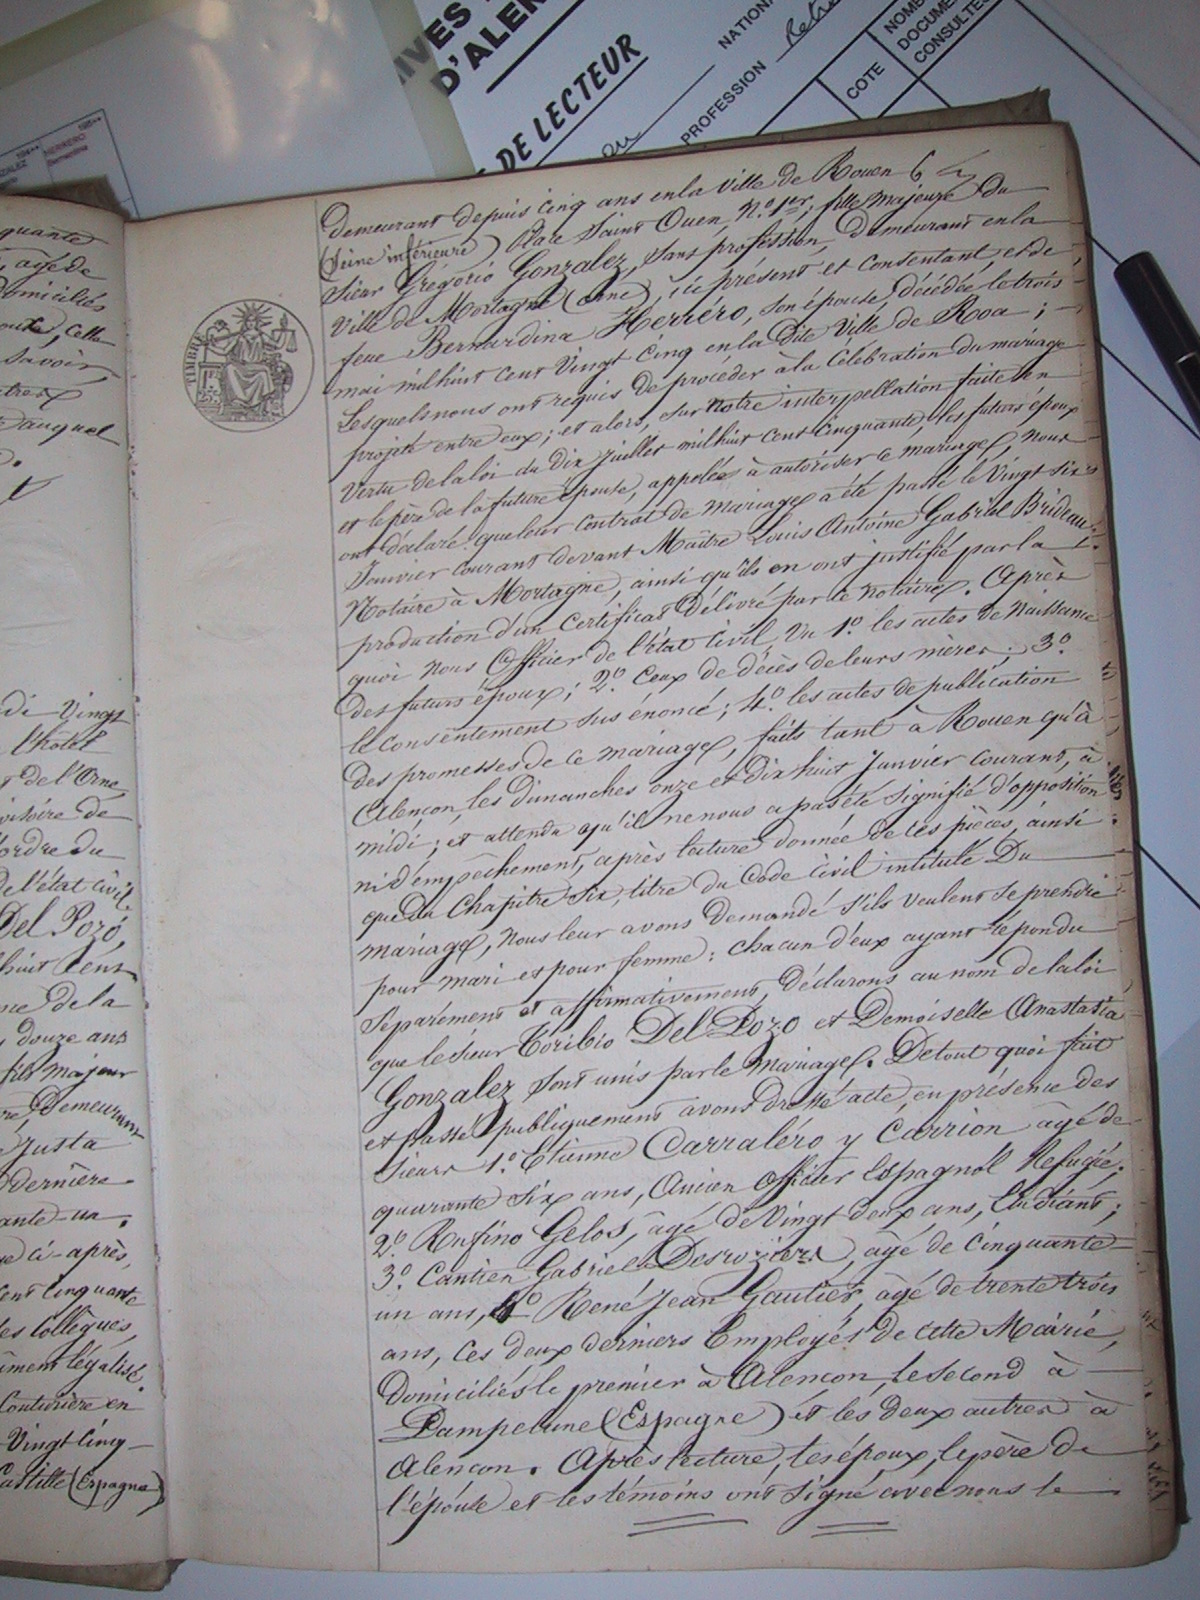 IVES
D'ALEN
DE LECTEUR
NATIONA
PROFESSION
Retr
COTE
NOMB
DOCUME
CONSULTÉS
HERRERO
Bernardina
quante
, agé de
domiciliés
Savoir,
Demeurant depuis Cinq ans en la Ville de Rouen
(Seine inférieure) Place Saint Ouen, N.º 1er; fille majeure du
Sieur Grégorio Gonzalez, Sans profession, Demeurant en la
Ville de Mortagne (orne), ici présent et consentant, et de
feue Bernardina Herréro, son épouse, décédée le trois
mai mil huit cent Vingt Cinq en la Dite Ville de Roa ;
Lesquels nous ont requis de procéder à la Célébration du mariage
projeté entre eux ; et alors, sur notre interpellation faite en
Vertu de la loi du Dix Juillet mil huit cent Cinquante, les futurs époux
et le père de la future épouse, appelée à autoriser ce mariage, nous
ont déclaré que leur Contrat de Mariage a été passé le Vingt Six
Janvier courant devant Maître Louis Antoine Gabriel Brideau,
Notaire à Mortagne, ainsi qu'ils en ont justifié par la
production d'un Certificat Délivré par ce notaire. Après
quoi Nous Officier de l'état Civil, Vu 1.º les actes de Naissance
des futurs époux ; 2.º Ceux de décès de leurs mères ; 3.º
le consentement sus énoncé ; 4.º les actes de publication
des promesses de ce mariage, faits tant à Rouen qu'à
Alençon, les Dimanches onze et dix huit Janvier courant, à
midi ; et attendu qu'il ne nous a pas été signifié d'opposition
ni d'empêchement, après lecture donnée de ces pièces, ainsi
que du Chapitre Six, titre du Code Civil intitulé Du
mariage, nous leur avons Demandé s'ils veulent se prendre
pour mari et pour femme : chacun d'eux ayant répondu
Séparément et affirmativement, Déclarons au nom de la loi
que le Sieur Toribio Del Pozo et Demoiselle Anastasia
Gonzalez sont unis par le Mariage. De tout quoi fait
et passé publiquement avons dressé acte, en présence des
Sieurs 1.º Etienne Carraléro y Carrion agé de
quarante Six ans, Ancien Officier Espagnol Refugié ;
2.º Rufino Gelos, âgé de Vingt deux ans, Etudiant ;
3.º Cantien Gabriel Desroziers, agé de Cinquante
un ans, 4º René Jean Gautier, agé de trente trois
ans, ces deux derniers Employés de cette Mairie,
Domiciliés le premier à Alençon, le Second à
Pampelune (Espagne) et les deux autres à
Alençon. Après lecture, les époux, le père de
l'épouse et les témoins ont signé avec nous le
di Vingt
l'hôtel
de l'Orne,
de
ordre du
de l'état civil
Del Pozo,
huit Cent
de la
, douze ans
fils majeur
Demeurant
Justa
dernière
ante-un.
ci-après,
cent cinquante
Collègues,
légalisé.
Couturière en
Vingt Cinq
Castille (Espagne)
TIMBRE